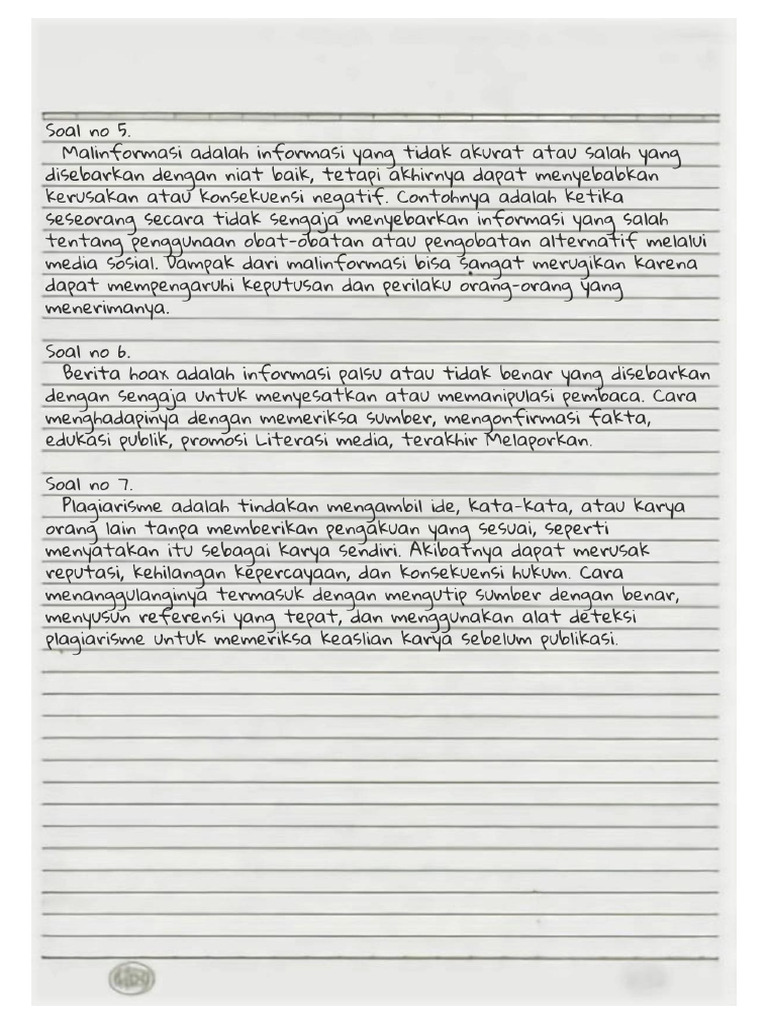 Soal no 5.
Malinformasi adalah informasi yang tidak akurat atau salah yang
disebarkan dengan niat baik, tetapi akhirnya dapat menyebabkan
kerusakan atau konsekuensi negatif. Contohnya adalah ketika
seseorang secara tidak sengaja menyebarkan informasi yang salah
tentang penggunaan obat-obatan atau pengobatan alternatif melalui
media sosial. Dampak dari malinformasi bisa sangat merugikan karena
dapat mempengaruhi keputusan dan perilaku orang-orang yang
menerimanya.
Soal no 6.
Berita hoax adalah informasi palsu atau tidak benar yang disebarkan
dengan sengaja untuk menyesatkan atau memanipulasi pembaca. Cara
menghadapinya dengan memeriksa sumber, mengonfirmasi fakta,
edukasi publik, promosi Literasi media, terakhir Melaporkan.
Soal no 7.
Plagiarisme adalah tindakan mengambil ide, kata-kata, atau karya
orang lain tanpa memberikan pengakuan yang sesuai, seperti
menyatakan itu sebagai karya sendiri. Akibatnya dapat merusak
reputasi, kehilangan kepercayaan, dan konsekuensi hukum. Cara
menanggulanginya termasuk dengan mengutip sumber dengan benar,
menyusun referensi yang tepat, dan menggunakan alat deteksi
plagiarisme untuk memeriksa keaslian karya sebelum publikasi.